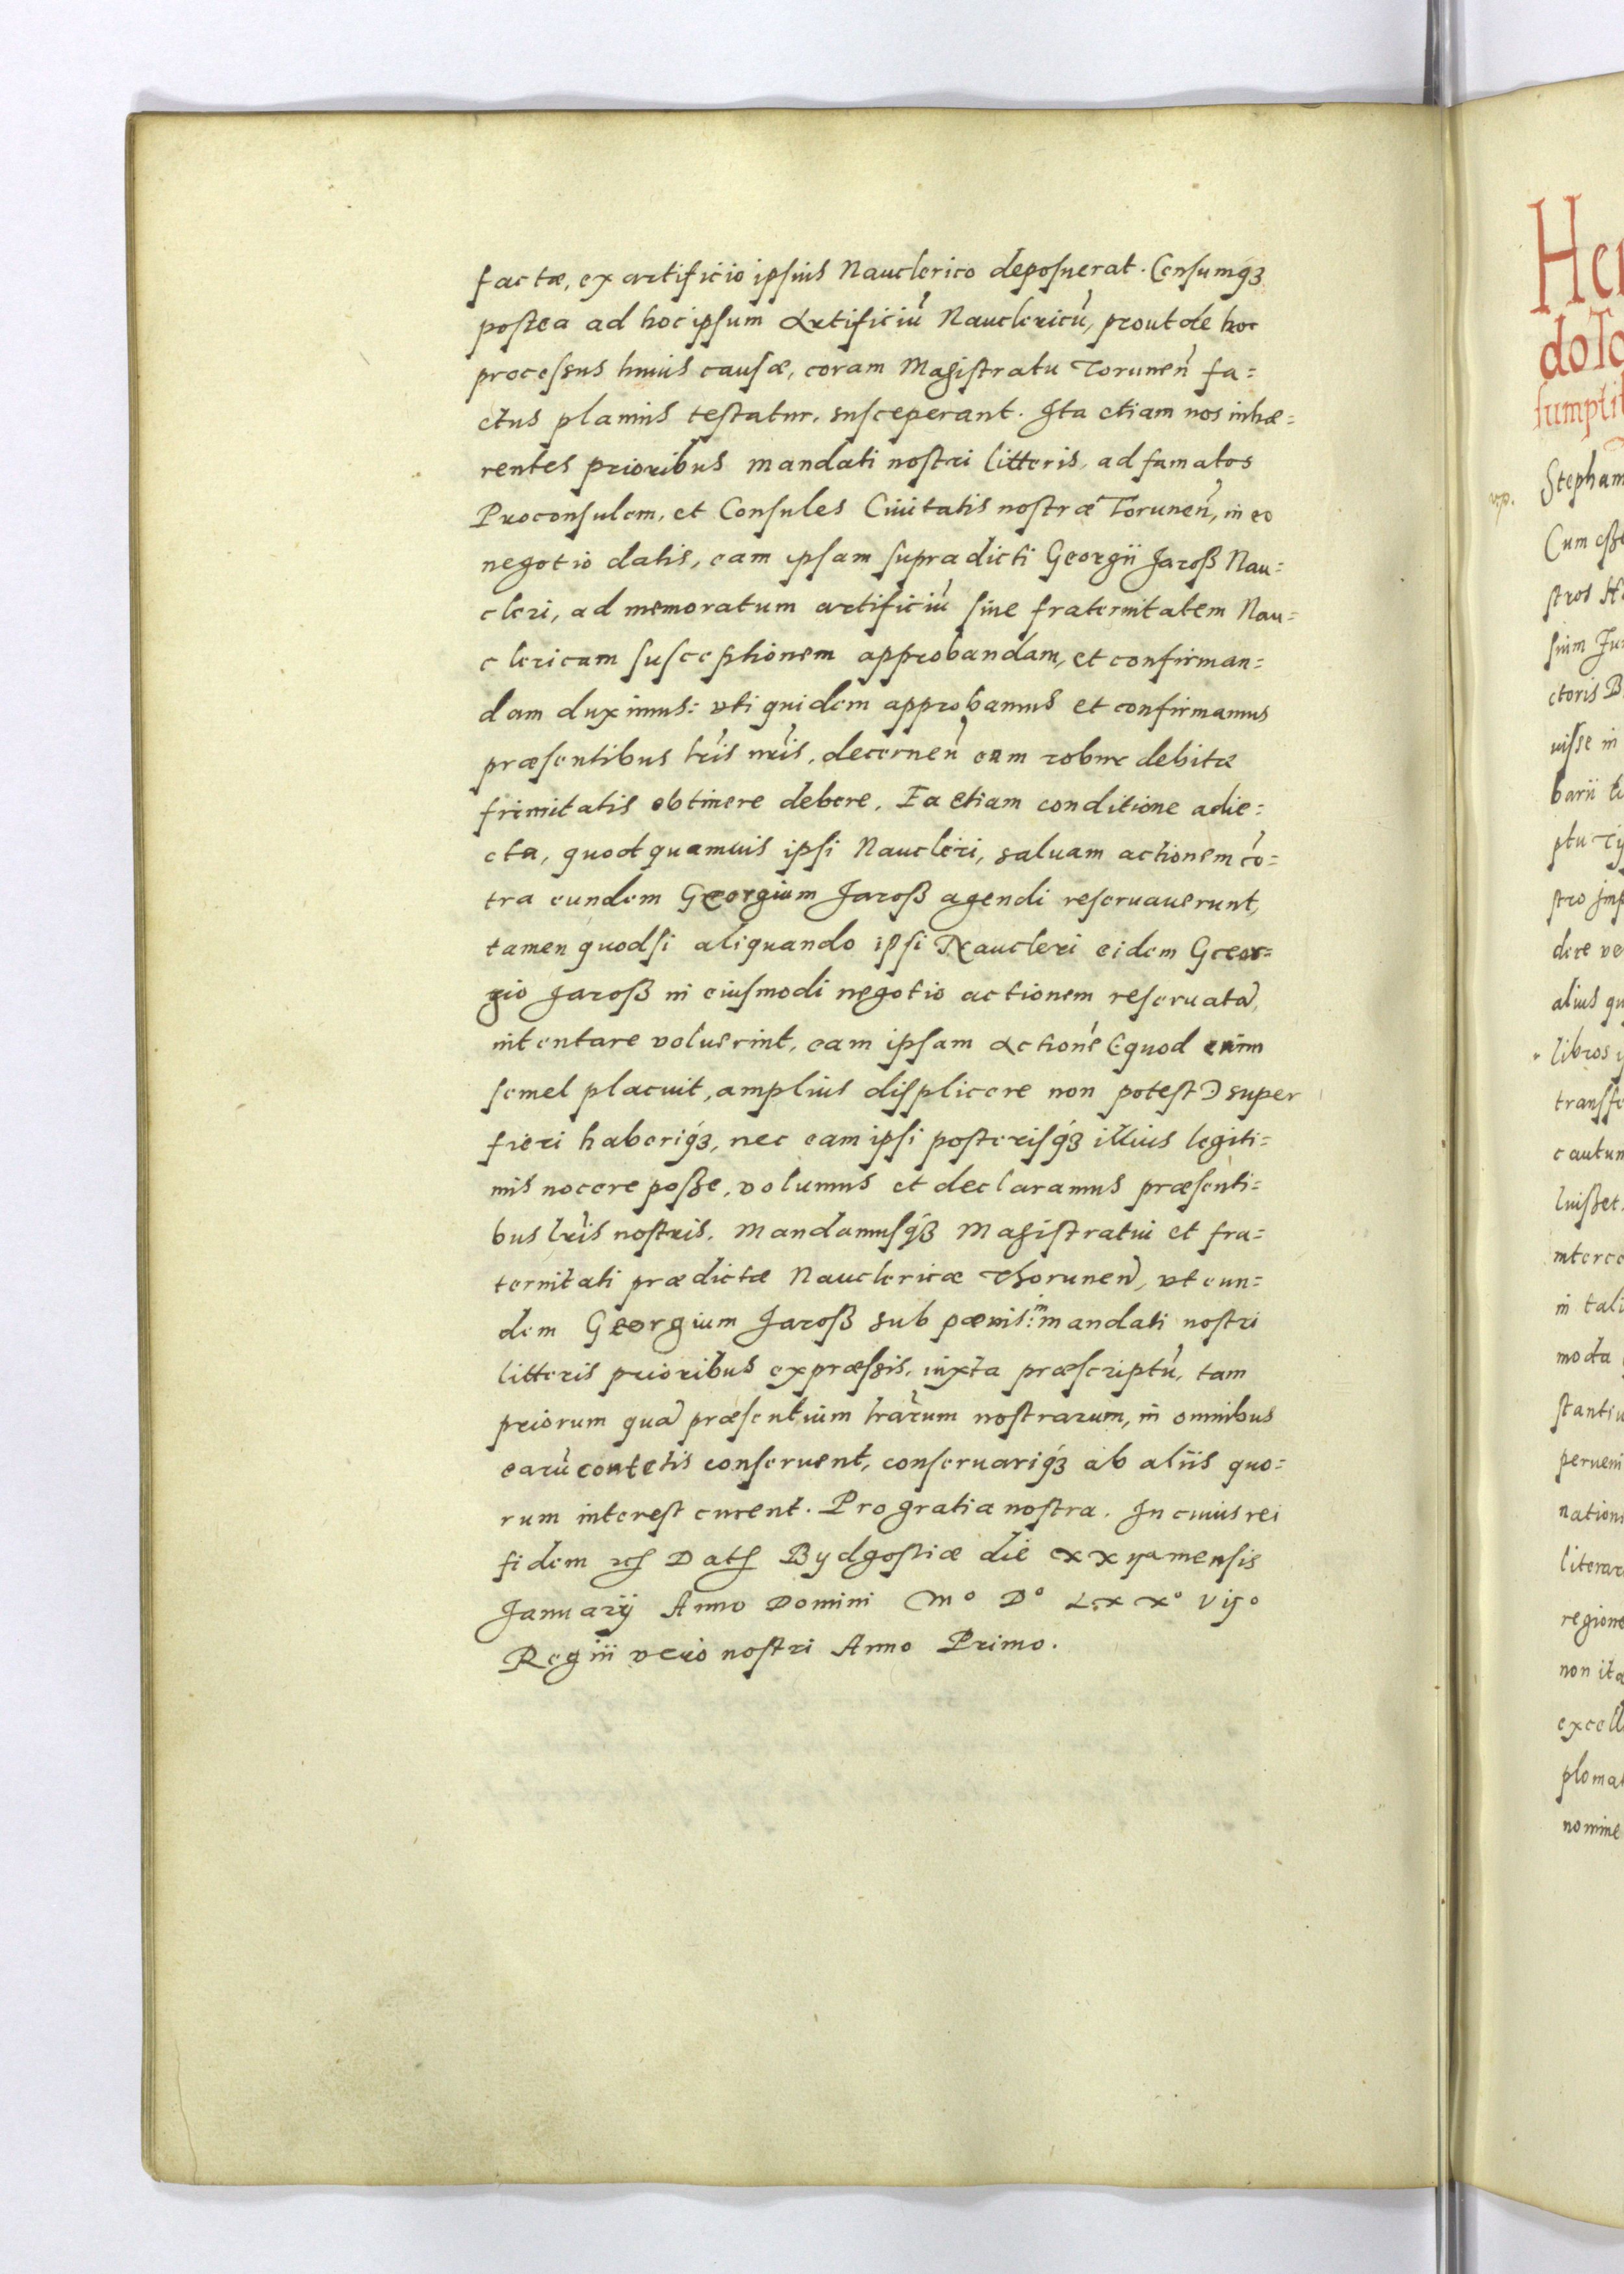 factæ, ex artificio ipsius Nauclerico deposuerat. Censumqꝫ
postea ad hoc ipsum Artificiũ Nauclericũ, prout de hoc
processus huius causæ, coram Magistratu Toruneñ fa=
ctus planius testatur, susceperant. Ita etiam nos inhæ=
rentes prioribus mandati nostri litteris, ad famatos
Proconsulem, et Consules Ciuitatis nostræ Toruneñ, in eo
negotio datis, eam ipsam supradicti Georgii Jaroß Nau=
cleri, ad memoratum artificiũ siue fraternitatem Nau=
clericam susceptionem approbandam, et confirman=
dam duximus: vti quidem approbamus et confirmamus
præsentibus lr̃is nr̃is, decerneñ eam robur debitæ
firmitatis obtinere debere. Ea etiam conditione adie=
cta, quod quamuis ipsi Naucleri, saluam actionem cõ=
tra eundem Georgium Jaroß agendi reseruauerunt,
tamen quodsi aliquando ipsi Naucleri eidem Geor=
gio Jaroß in eiusmodi negotio actionem reseruatã,
intentare voluerint, eam ipsam actionẽ (quod enim
semel placuit, amplius displicere non potest) super
fieri haberiqꝫ, nec eam ipsi posterisqꝫ illius legiti=
mis nocere poße, volumus et declaramus præsenti=
bus lr̃is nostris. Mandamusqꝫ Magistratui et fra=
ternitati prædictæ Nauclericæ Thoruneñ, vt eun=
dem Georgium Jaroß sub pœnis in mandati nostri
litteris prioribus expræssis, iuxta præscriptũ, tam
priorum quã præsentium lrãrum nostrarum, in omnibus
earũ contẽtis conseruent, conseruariqꝫ ab aliis quo=
rum interest curent. Pro gratia nostra. In cuius rei
fidem Bydgostiæ die mensis
Januarij Anno Domini Mº Dº LXXº Vijº
Regñi vero nostri Anno Primo.
Her
do To
sumptit
vp.
Stephan
Cum eße
stros
ctoris B
uisse in
barii
stro Jmp
dere ve
alius qu
libros
transfe
cautum
luißet.
interce
in tali
moda
stantiu
perueni
nation
literar
regione
non ita
excell
plomat
nomine